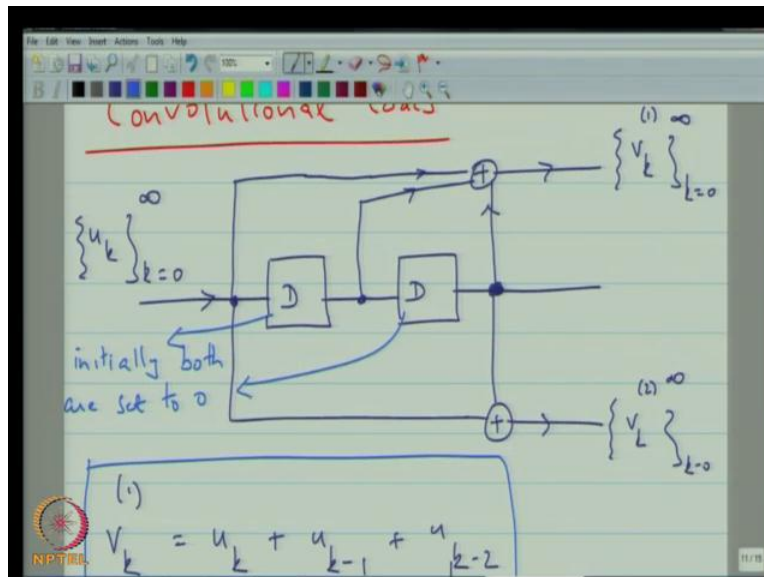 File Edit View Insert Actions Tools Help
100%
B I
Convolutional Codes
{ u_k }_{k=0}^{∞}
D
D
{ v_k^{(1)} }_{k=0}^{∞}
initially both
are set to 0
{ v_k^{(2)} }_{k=0}^{∞}
v_k^{(1)} = u_k + u_{k-1} + u_{k-2}
NPTEL
11/15